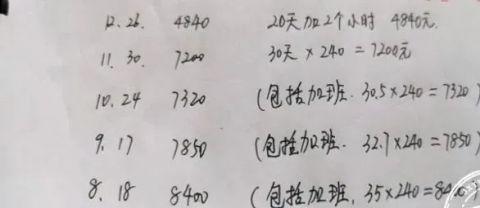 12.26. 4840 20天加2个小时 4840元.
11.30. 7200 30天×240=7200元
10.24 7320 (包括加班.30.5×240=7320)
9.17 7850 (包括加班.32.7×240=7850)
8.18 8400 (包括加班,35×240=